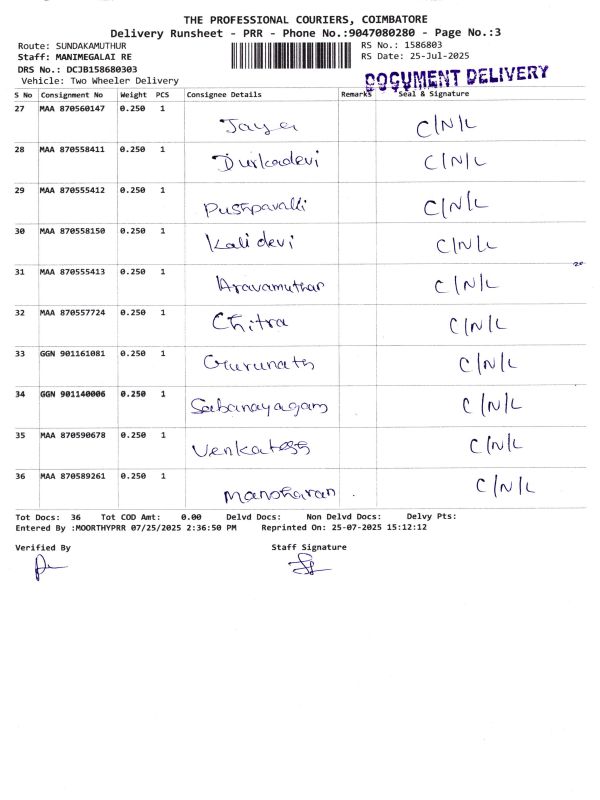 THE PROFESSIONAL COURIERS, COIMBATORE
Delivery Runsheet - PRR - Phone No.:9047080280 - Page No.:3
Route: SUNDAKAMUTHUR
RS No.: 1586803
Staff: MANIMEGALAI RE
RS Date: 25-Jul-2025
DRS No.: DCJB158680303
Vehicle: Two Wheeler Delivery
DOCUMENT DELIVERY
S No Consignment No Weight PCS Consignee Details Remarks Seal & Signature
27 MAA 870560147 0.250 1 Jaya C/N/L
28 MAA 870558411 0.250 1 Durkadevi C/N/L
29 MAA 870555412 0.250 1 Pushpavalli C/N/L
30 MAA 870558150 0.250 1 Kalidevi C/N/L
31 MAA 870555413 0.250 1 Aravamuthan C/N/L
32 MAA 870557724 0.250 1 Chitra C/N/L
33 GGN 901161081 0.250 1 Gurunath C/N/L
34 GGN 901140006 0.250 1 Sabanayagam C/N/L
35 MAA 870590678 0.250 1 Venkatesh C/N/L
36 MAA 870589261 0.250 1 Manoharan C/N/L
Tot Docs: 36 Tot COD Amt: 0.00 Delvd Docs: Non Delvd Docs: Delvy Pts:
Entered By :MOORTHYPRR 07/25/2025 2:36:50 PM Reprinted On: 25-07-2025 15:12:12
Verified By Staff Signature